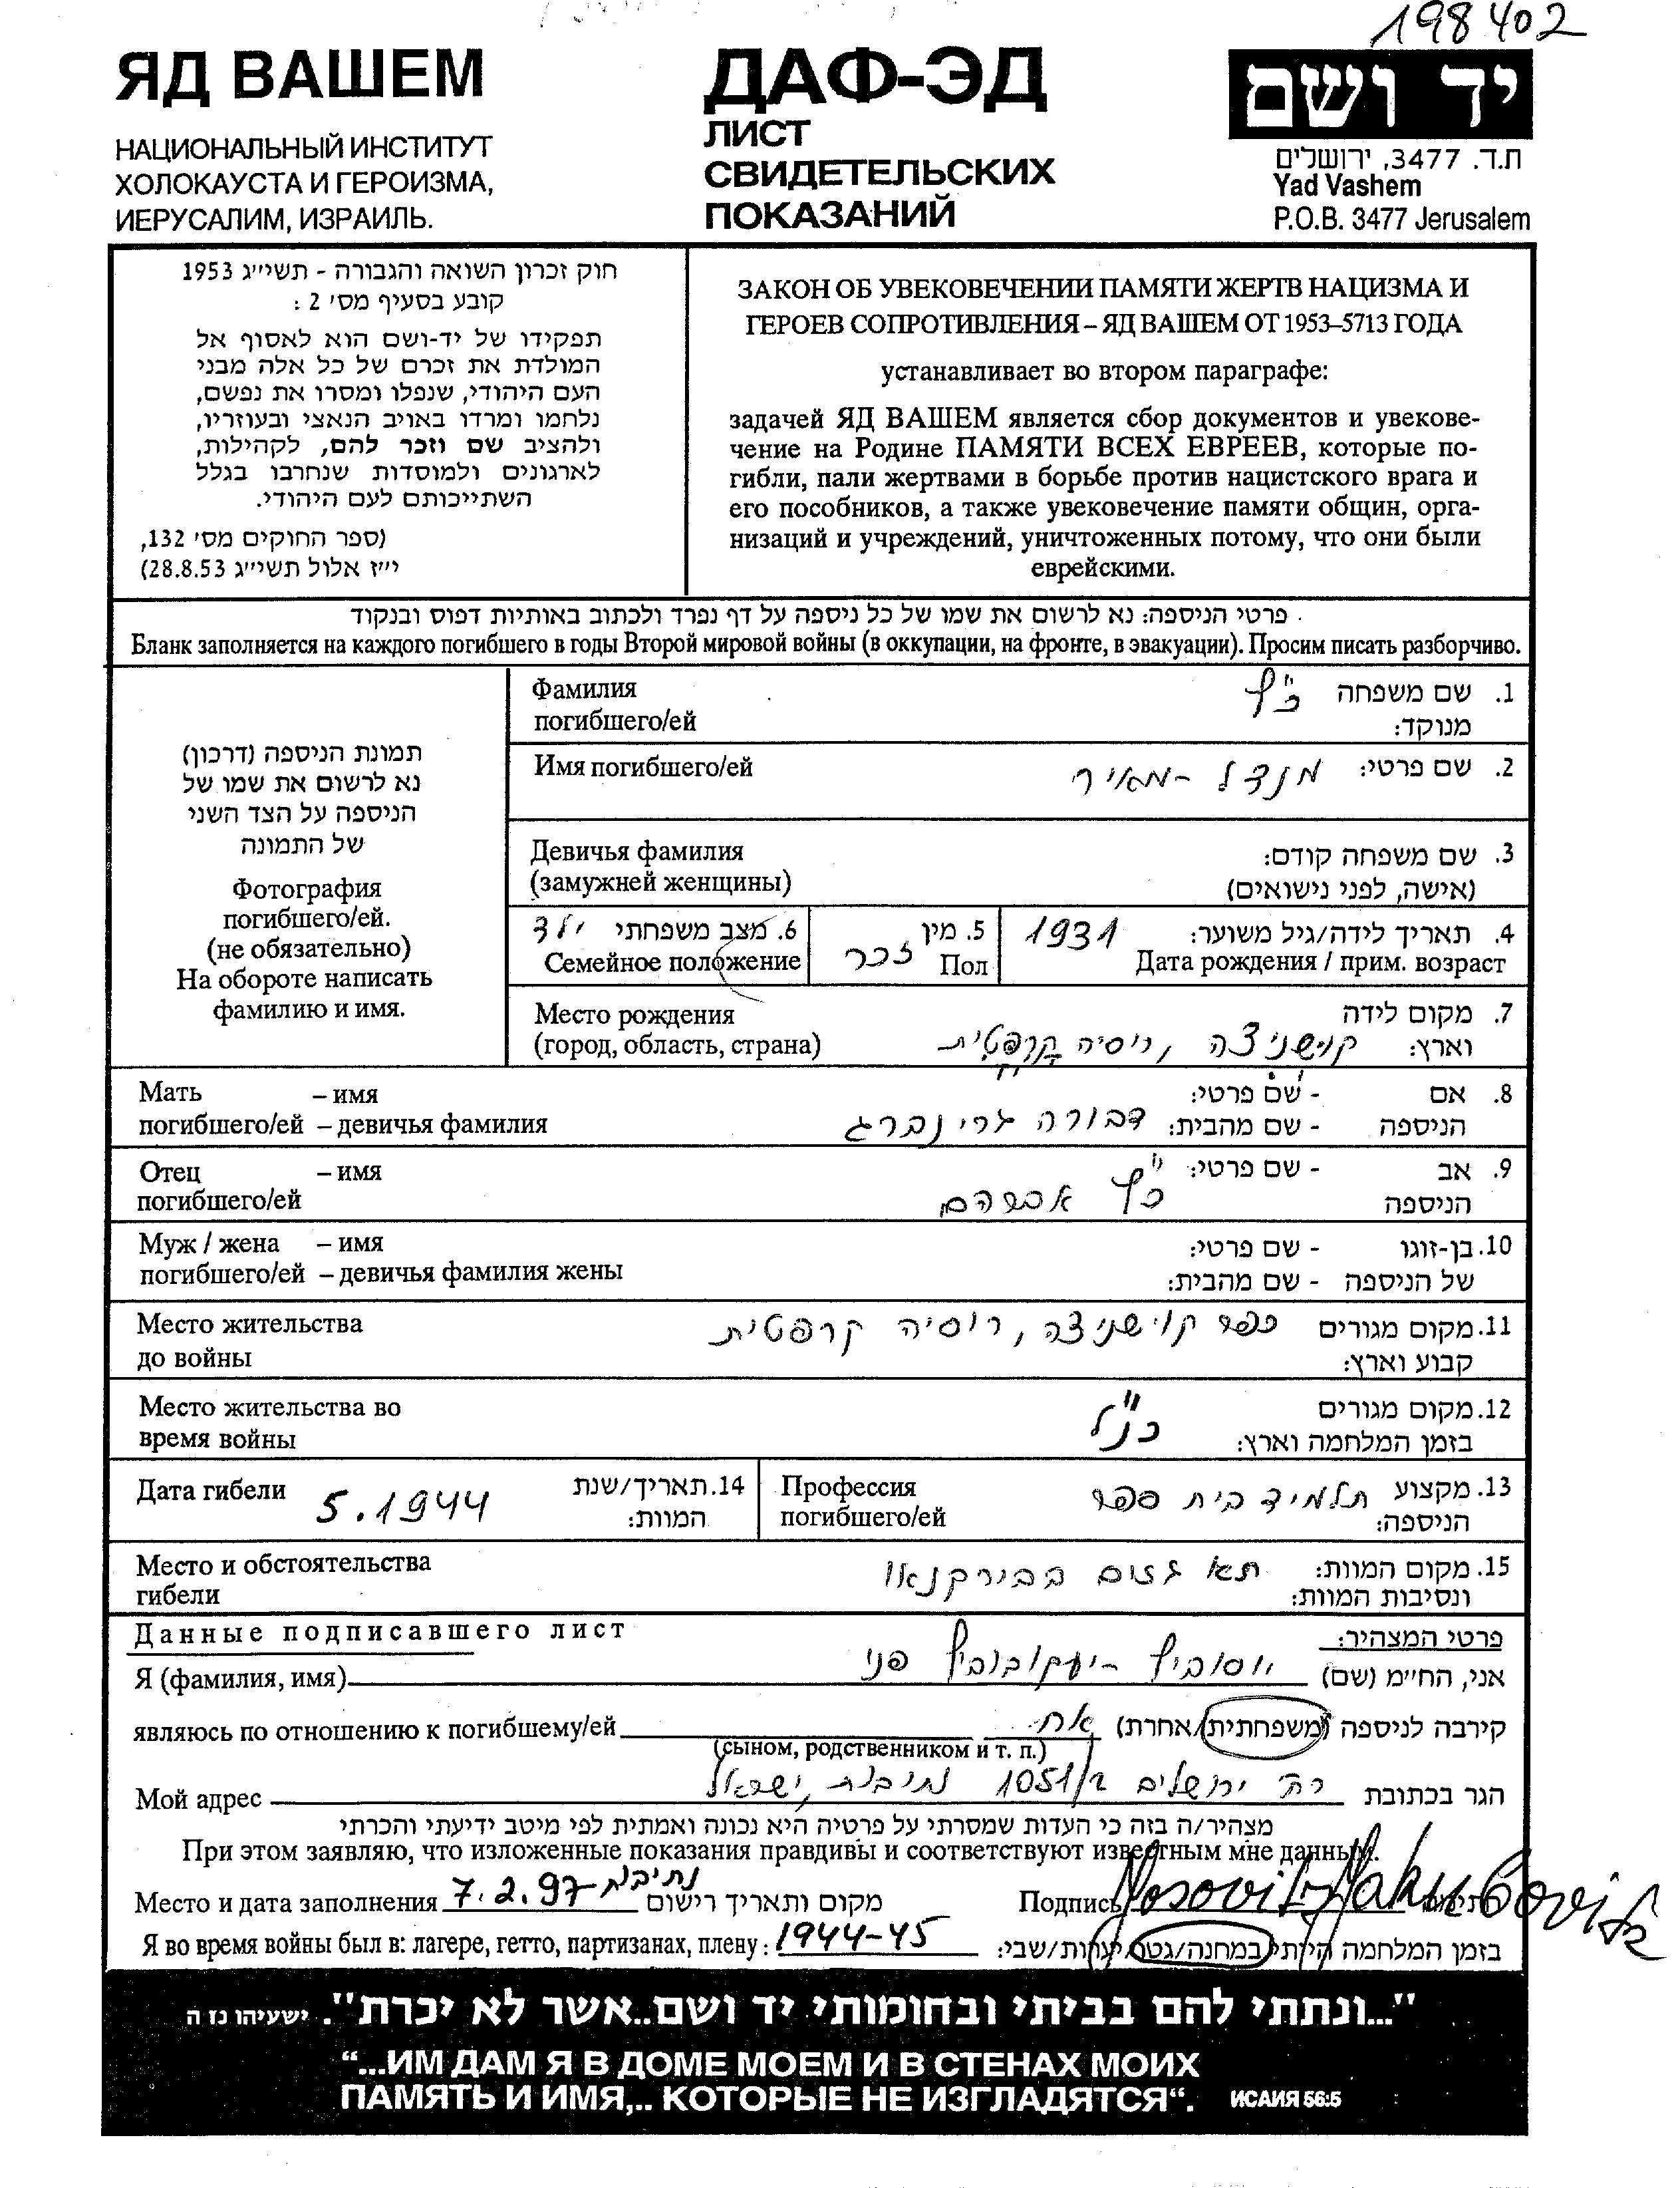 198402
ЯД ВАШЕМ
НАЦИОНАЛЬНЫЙ ИНСТИТУТ
ХОЛОКАУСТА И ГЕРОИЗМА,
ИЕРУСАЛИМ, ИЗРАИЛЬ.
ДАФ-ЭД
ЛИСТ
СВИДЕТЕЛЬСКИХ
ПОКАЗАНИЙ
יד ושם
ת.ד. 3477, ירושלים
Yad Vashem
P.O.B. 3477 Jerusalem
חוק זכרון השואה והגבורה - תשי״ג 1953
קובע בסעיף מס׳ 2 :
תפקידו של יד-ושם הוא לאסוף אל
המולדת את זכרם של כל אלה מבני
העם היהודי, שנפלו ומסרו את נפשם,
נלחמו ומרדו באויב הנאצי ובעוזריו,
ולהציב שם וזכר להם, לקהילות,
לארגונים ולמוסדות שנחרבו בגלל
השתייכותם לעם היהודי.
(ספר החוקים מס׳ 132,
י״ז אלול תשי״ג 28.8.53)
ЗАКОН ОБ УВЕКОВЕЧЕНИИ ПАМЯТИ ЖЕРТВ НАЦИЗМА И
ГЕРОЕВ СОПРОТИВЛЕНИЯ – ЯД ВАШЕМ ОТ 1953–5713 ГОДА
устанавливает во втором параграфе:
задачей ЯД ВАШЕМ является сбор документов и увекове-
чение на Родине ПАМЯТИ ВСЕХ ЕВРЕЕВ, которые по-
гибли, пали жертвами в борьбе против нацистского врага и
его пособников, а также увековечение памяти общин, орга-
низаций и учреждений, уничтоженных потому, что они были
еврейскими.
פרטי הניספה: נא לרשום את שמו של כל ניספה על דף נפרד ולכתוב באותיות דפוס ובנקוד.
Бланк заполняется на каждого погибшего в годы Второй мировой войны (в оккупации, на фронте, в эвакуации). Просим писать разборчиво.
תמונת הניספה (דרכון)
נא לרשום את שמו של
הניספה על הצד השני
של התמונה
Фотография
погибшего/ей.
(не обязательно)
На обороте написать
фамилию и имя.
Фамилия
погибшего/ей
1. שם משפחה כ״ץ
מנוקד:
Имя погибшего/ей
2. שם פרטי: מנדל - מאיר
Девичья фамилия
(замужней женщины)
3. שם משפחה קודם:
(אישה, לפני נישואים)
4. תאריך לידה/גיל משוער: 1931
Дата рождения / прим. возраст
5. מין זכר
Пол
6. מצב משפחתי ילד
Семейное положение
Место рождения
(город, область, страна)
7. מקום לידה
וארץ: קוישניצה, רוסיה קרפטית
Мать – имя
погибшего/ей – девичья фамилия
8. אם - שם פרטי:
הניספה - שם מהבית: דבורה גרינברג
Отец – имя
погибшего/ей
9. אב - שם פרטי: כ״ץ אברהם
הניספה
Муж / жена – имя
погибшего/ей – девичья фамилия жены
10. בן-זוגו - שם פרטי:
של הניספה - שם מהבית:
Место жительства
до войны
11. מקום מגורים כפר קוישניצה, רוסיה קרפטית
קבוע וארץ:
Место жительства во
время войны
12. מקום מגורים
בזמן המלחמה וארץ: כנ״ל
13. מקצוע תלמיד בית ספר
הניספה:
Профессия
погибшего/ей
14. תאריך/שנת
המוות:
Дата гибели 5.1944
Место и обстоятельства
гибели
15. מקום המוות: תא גזים בבירקנאו
ונסיבות המוות:
Данные подписавшего лист
פרטי המצהיר:
Я (фамилия, имя)
אני, הח״מ (שם) יוסוביץ - יעקובוביץ פני
являюсь по отношению к погибшему/ей
(сыном, родственником и т. п.)
קירבה לניספה (משפחתית/אחרת) אח
Мой адрес
הגר בכתובת רח׳ ירושלים 1051/2 נתיבות, ישראל
מצהיר/ה בזה כי העדות שמסרתי על פרטיה היא נכונה ואמתית לפי מיטב ידיעתי והכרתי
При этом заявляю, что изложенные показания правдивы и соответствуют известным мне данным.
Место и дата заполнения 7.2.97 נתיבות מקום ותאריך רישום
Подпись Yosovitz Yakubovitz חתימה
Я во время войны был в: лагере, гетто, партизанах, плену: 1944-45
בזמן המלחמה הייתי במחנה/גטו/יערות/שבי:
"...ונתתי להם בביתי ובחומותי יד ושם..אשר לא יכרת". ישעיהו נז ה
“...ИМ ДАМ Я В ДОМЕ МОЕМ И В СТЕНАХ МОИХ
ПАМЯТЬ И ИМЯ,.. КОТОРЫЕ НЕ ИЗГЛАДЯТСЯ“. ИСАИЯ 56:5